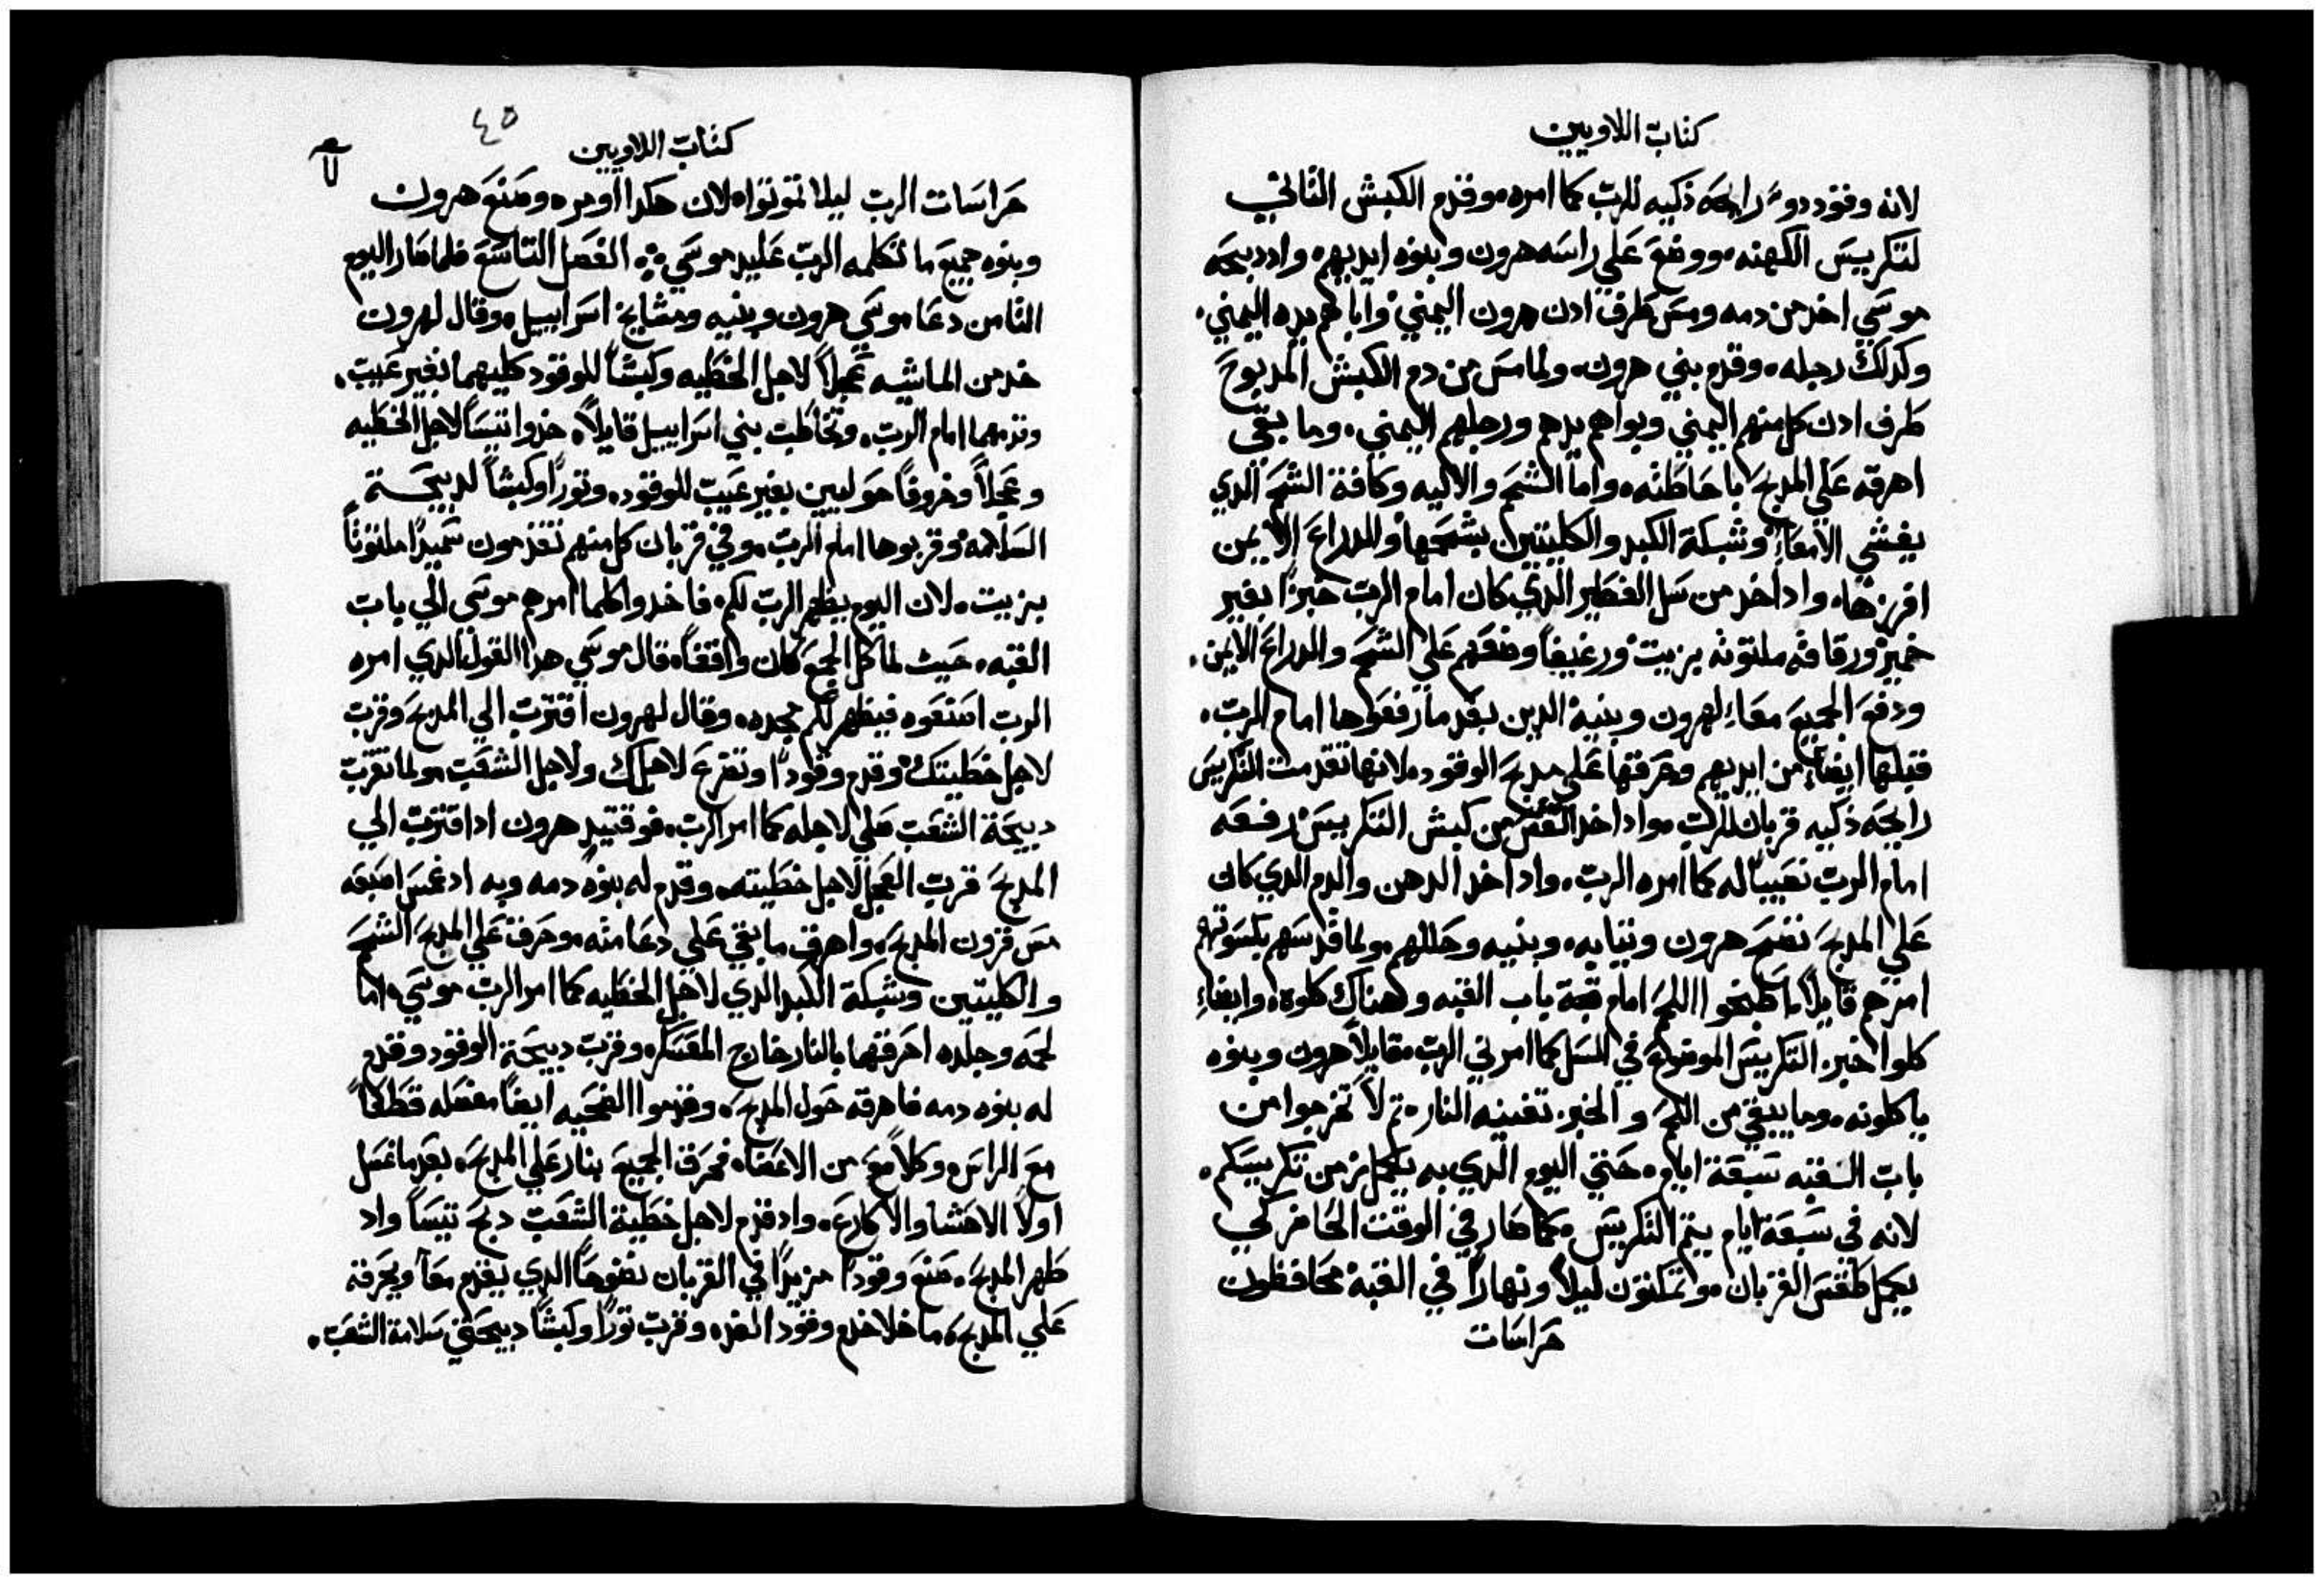 كتاب اللاويين
لانه وقود دو رايحه ذكيه للرب كما امره وقدم الكبش الثاني
لتكريس الكهنه ووضع علي راسه هرون وبنوه ايديهم وادبحه
موسي اخد من دمه ومس طرف ادن هرون اليمني وابهام يده اليمني
وكدلك رجله وقدم بني هرون ولما مس من دم الكبش المدبوح
طرف ادن كل منهم اليمني وبواهم يدهم ورجلهم اليمني وما بقي
اهرقه علي المدبح باحاطته واما الشحم والاليه وكافة الشحم الدي
يغشي الامعاء وشبكة الكبد والكليتين بشحمها والدراع الايمن
افرزها واد اخد من سل الفطير الدي كان امام الرب خبزا بغير
خمير ورقاقه ملتوته بزيت ورغيفا وضعهم علي الشحم والدراع الايمن
ودفع الجميع معا لهرون وبنيه الدين بعد ما رفعوها امام الرب
قبلها ايضا من ايديهم وحرقها علي مدبح الوقود لانها تقدمت التكريس
رايحه ذكيه قربان للرب واد اخد القس من كبش التكريس رفعه
امام الرب نصيبا له كما امره الرب واد اخد الدهن والدم الدي كان
علي المدبح نضح هرون وتيابه وبنيه وحللهم ولما قدسهم بكسوتهم
امرهم قايلا اطبخوا اللحم امام قبة باب القبه وهناك كلوه وايضا
كلوا خبز التكريس الموضوع في السل كما امرني الرب قايلا هرون وبنوه
ياكلونه وما يبقي من اللحم والخبز تفنيه النار تم لا تخرجوا من
باب القبه سبعة ايام حتي اليوم الدي به يكمل زمن تكريسكم
لانه في سبعة ايام يتم التكريس كما صار في الوقت الحاضر لكي
يكمل طقس القربان وتمكتون ليلا ونهارا في القبه محافظون
حراسات
٤٥
كتاب اللاويين
حراسات الرب ليلا تموتوا لان هكدا اومر وصنع هرون
وبنوه جميع ما تكلمه الرب علييد موسي الفصل التاسع فلما صار اليوم
التامن دعا موسي هرون وبنيه ومشايخ اسراييل وقال لهرون
خد من الماشيه عجلا لاجل الخطيه وكبشا للوقود كليهما بغير عيب
وقدمهما امام الرب وتخاطب بني اسراييل قايلا خدوا تيسا لاجل الخطيه
وعجلا وخروفا حوليين بغير عيب للوقود وتورا وكبشا لدبيحة
السلامه وقربوها امام الرب وفي قربان كل منهم تقدمون سميدا ملتوتا
بزيت لان اليوم يظهر الرب لكم فاخدوا كلما امرهم موسي الي باب
القبه حيت لما كل الجمع كان واقفا قال موسي هدا القول الدي امره
الرب اصنعوه فيظهر لكم مجده وقال لهرون اقترب الي المدبح وقرب
لاجل خطيتك وقدم وقودا وتضرع لاجلك ولاجل الشعب ولما تقرب
دبيحة الشعب صلي لاجله كما امر الرب فوقتيد هرون اد اقترب الي
المدبح قرب العجل لاجل خطيته وقدم له بنوه دمه وبه اد غمس اصبعه
مس قرون المدبح واهرق ما بقي علي دعامته وحرق علي المدبح الشحم
والكليتين وشبكة الكبد الدي لاجل الخطيه كما امر الرب موسي اما
لحمه وجلده احرقهما بالنار خارج المعسكر وقرب دبيحة الوقود وقدم
له بنوه دمه فاهرقه حول المدبح وقدموا الضحيه ايضا مفصله قطعا
مع الراس وكلا مع من الاعضا فحرق الجميع بنار علي المدبح بعد ما غسل
اولا الاحشا والاكارع واد قدم لاجل خطية الشعب دبح تيسا واد
طهر المدبح صنع وقودا مزيدا في القربان نضوحا الدي يقدم معا ويحرقه
علي المدبح ما خلا خدم وقود الغده وقرب تورا وكبشا دبيحتي سلامة الشعب